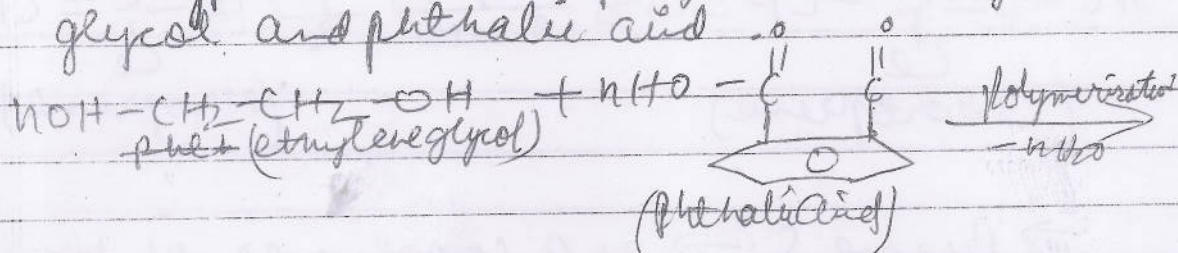 glycol and phthalic acid.
O O
nOH-CH2-CH2-OH + nHO-C C Polymerisation
-nH2O
(ethyleneglycol)
(Phthalic acid)